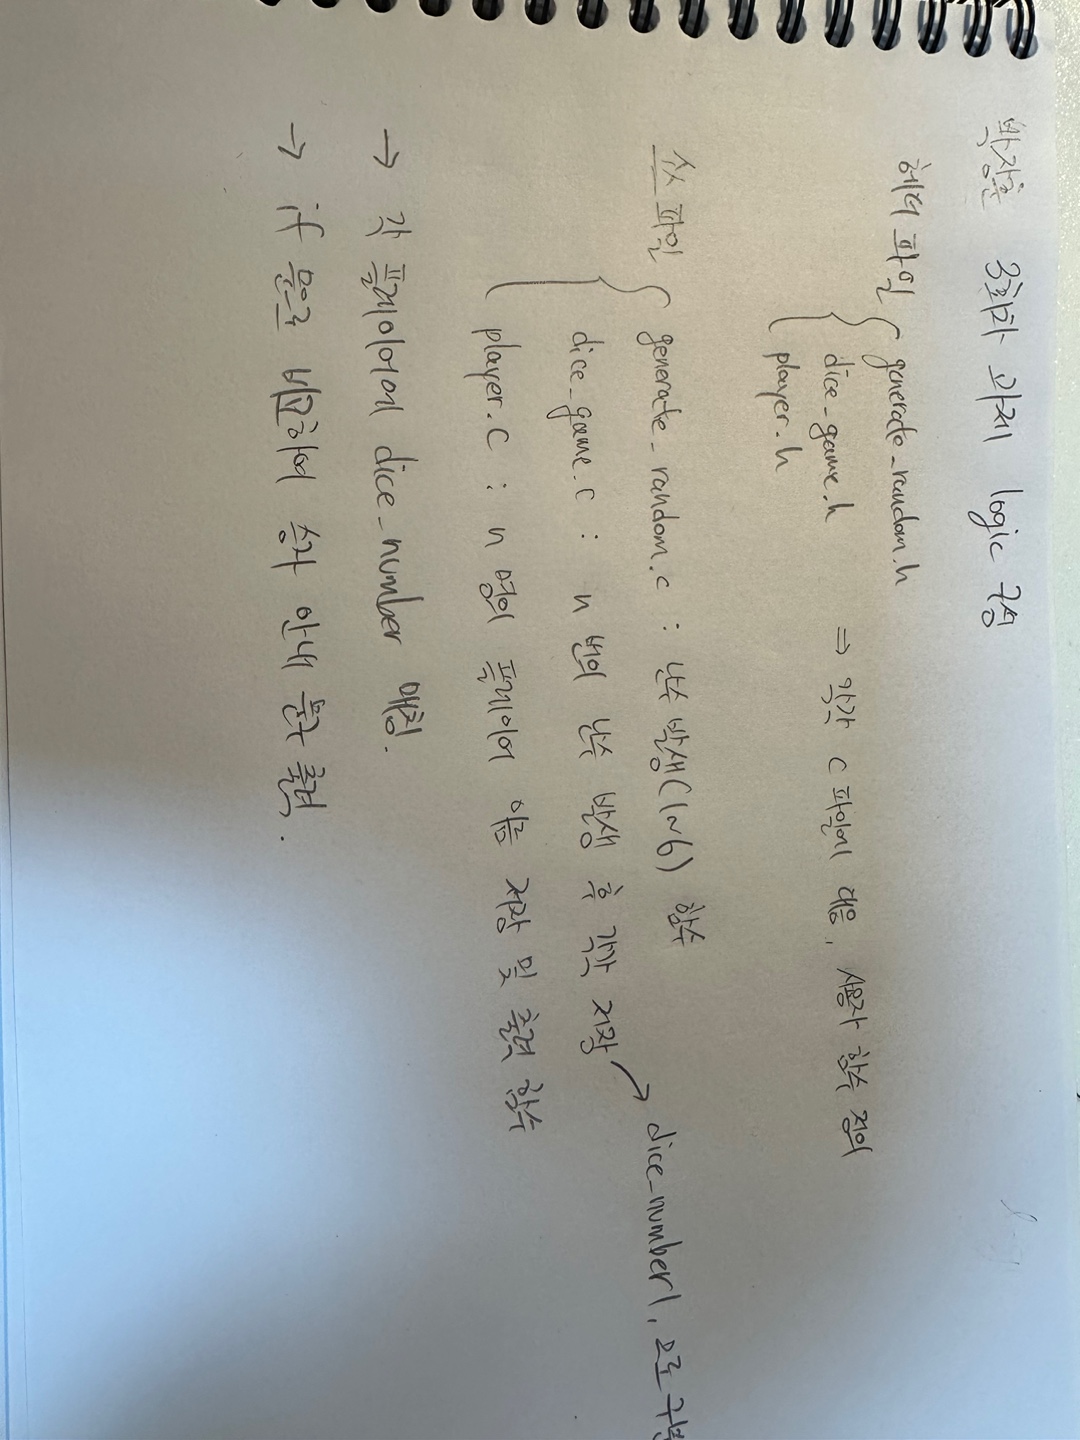 박장훈 3회차 과제 logic 구성
헤더 파일 { generate_random.h
dice_game.h ⇒ 각각 c 파일에 대응, 사용자 함수 정의
player.h
소스 파일 { generate_random.c : 난수 발생(1~6) 함수
dice_game.c : n 번의 난수 발생 후 각각 저장 → dice_number1, 으로 구분
player.c : n 명의 플레이어 이름 저장 및 출력 함수
→ 각 플레이어에 dice_number 매칭.
→ if 문으로 비교하여 승자 안내 문구 출력.